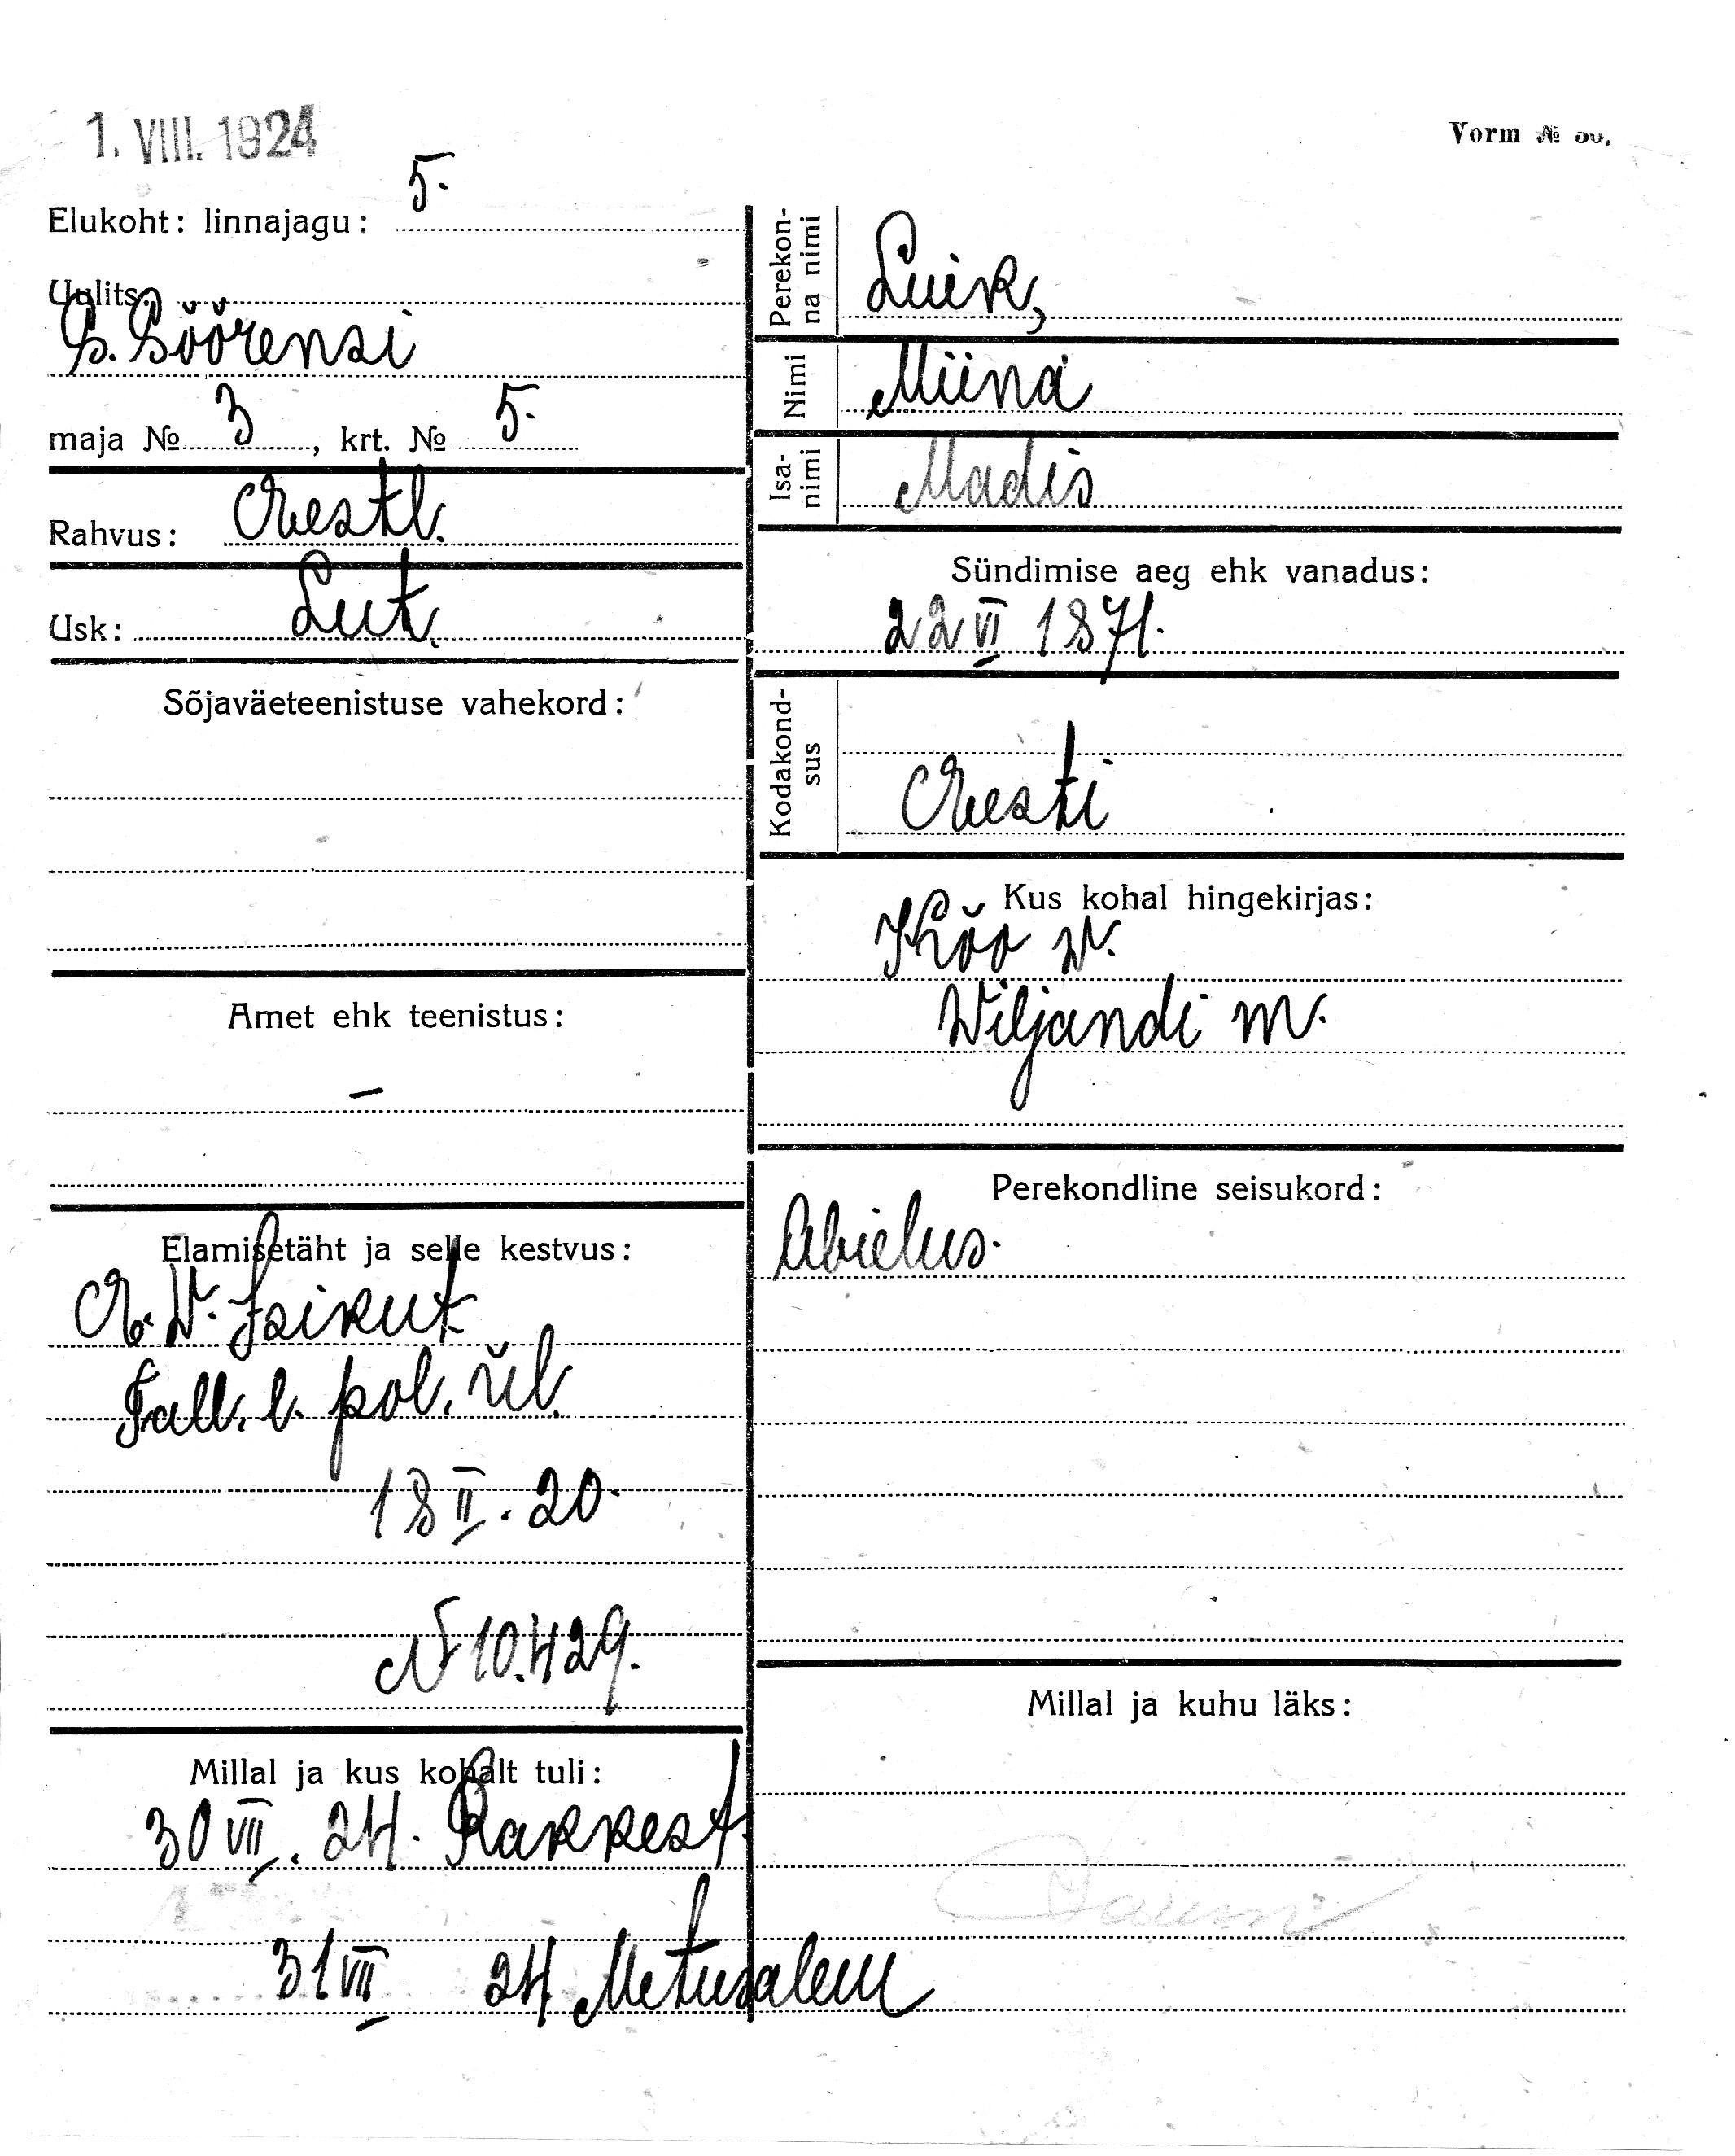 1. VIII. 1924
Vorm №
Elukoht: linnajagu: 5.
Uulits:
S. Sõõrensi
maja № 3, krt. № 5.
Rahvus: Eestl.
Usk: Lut.
Sõjaväeteenistuse vahekord:
Amet ehk teenistus:
–
Elamisetäht ja selle kestvus:
E. W. Isikut.
Tall. l. pol. ül.
18 II. 20.
N 10.429.
Millal ja kus kohalt tuli:
30 VII. 24. Rakkest.
31 VII 24 Metusalem
Perekonna nimi Luik,
Nimi Miina
Isanimi Madis
Sündimise aeg ehk vanadus:
22 VI 1871.
Kodakondsus
Eesti
Kus kohal hingekirjas:
Kõo w.
Wiljandi m.
Perekondline seisukord:
Abielus.
Millal ja kuhu läks: